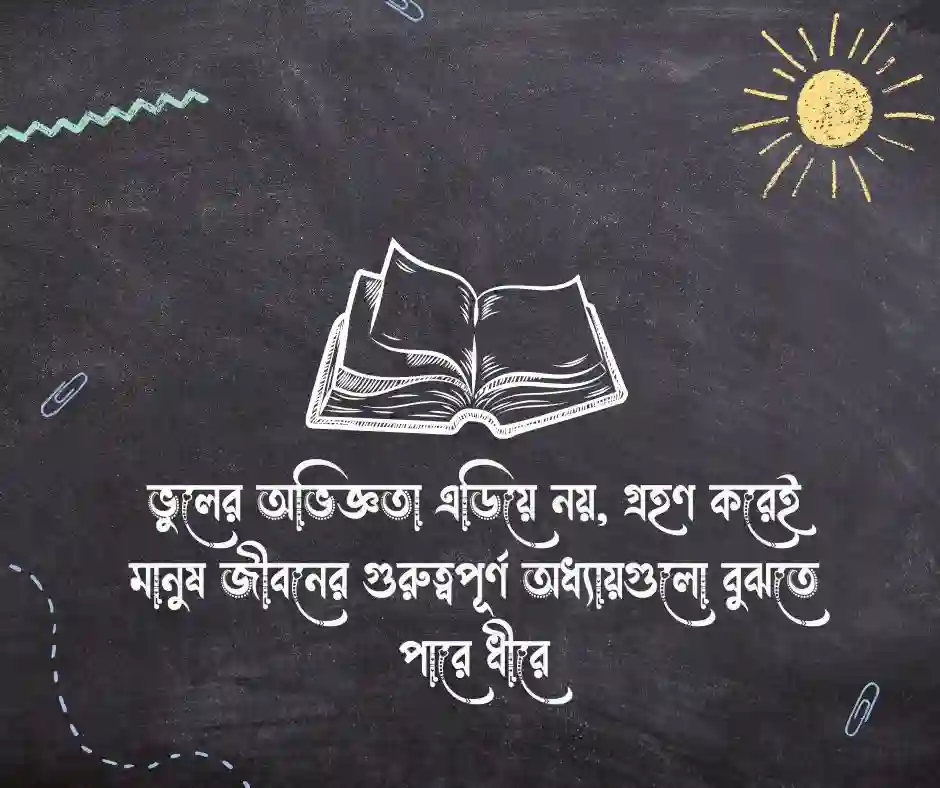 ভুলের অভিজ্ঞতা এড়িয়ে নয়, গ্রহণ করেই
মানুষ জীবনের গুরুত্বপূর্ণ অধ্যায়গুলো বুঝতে
পারে ধীরে